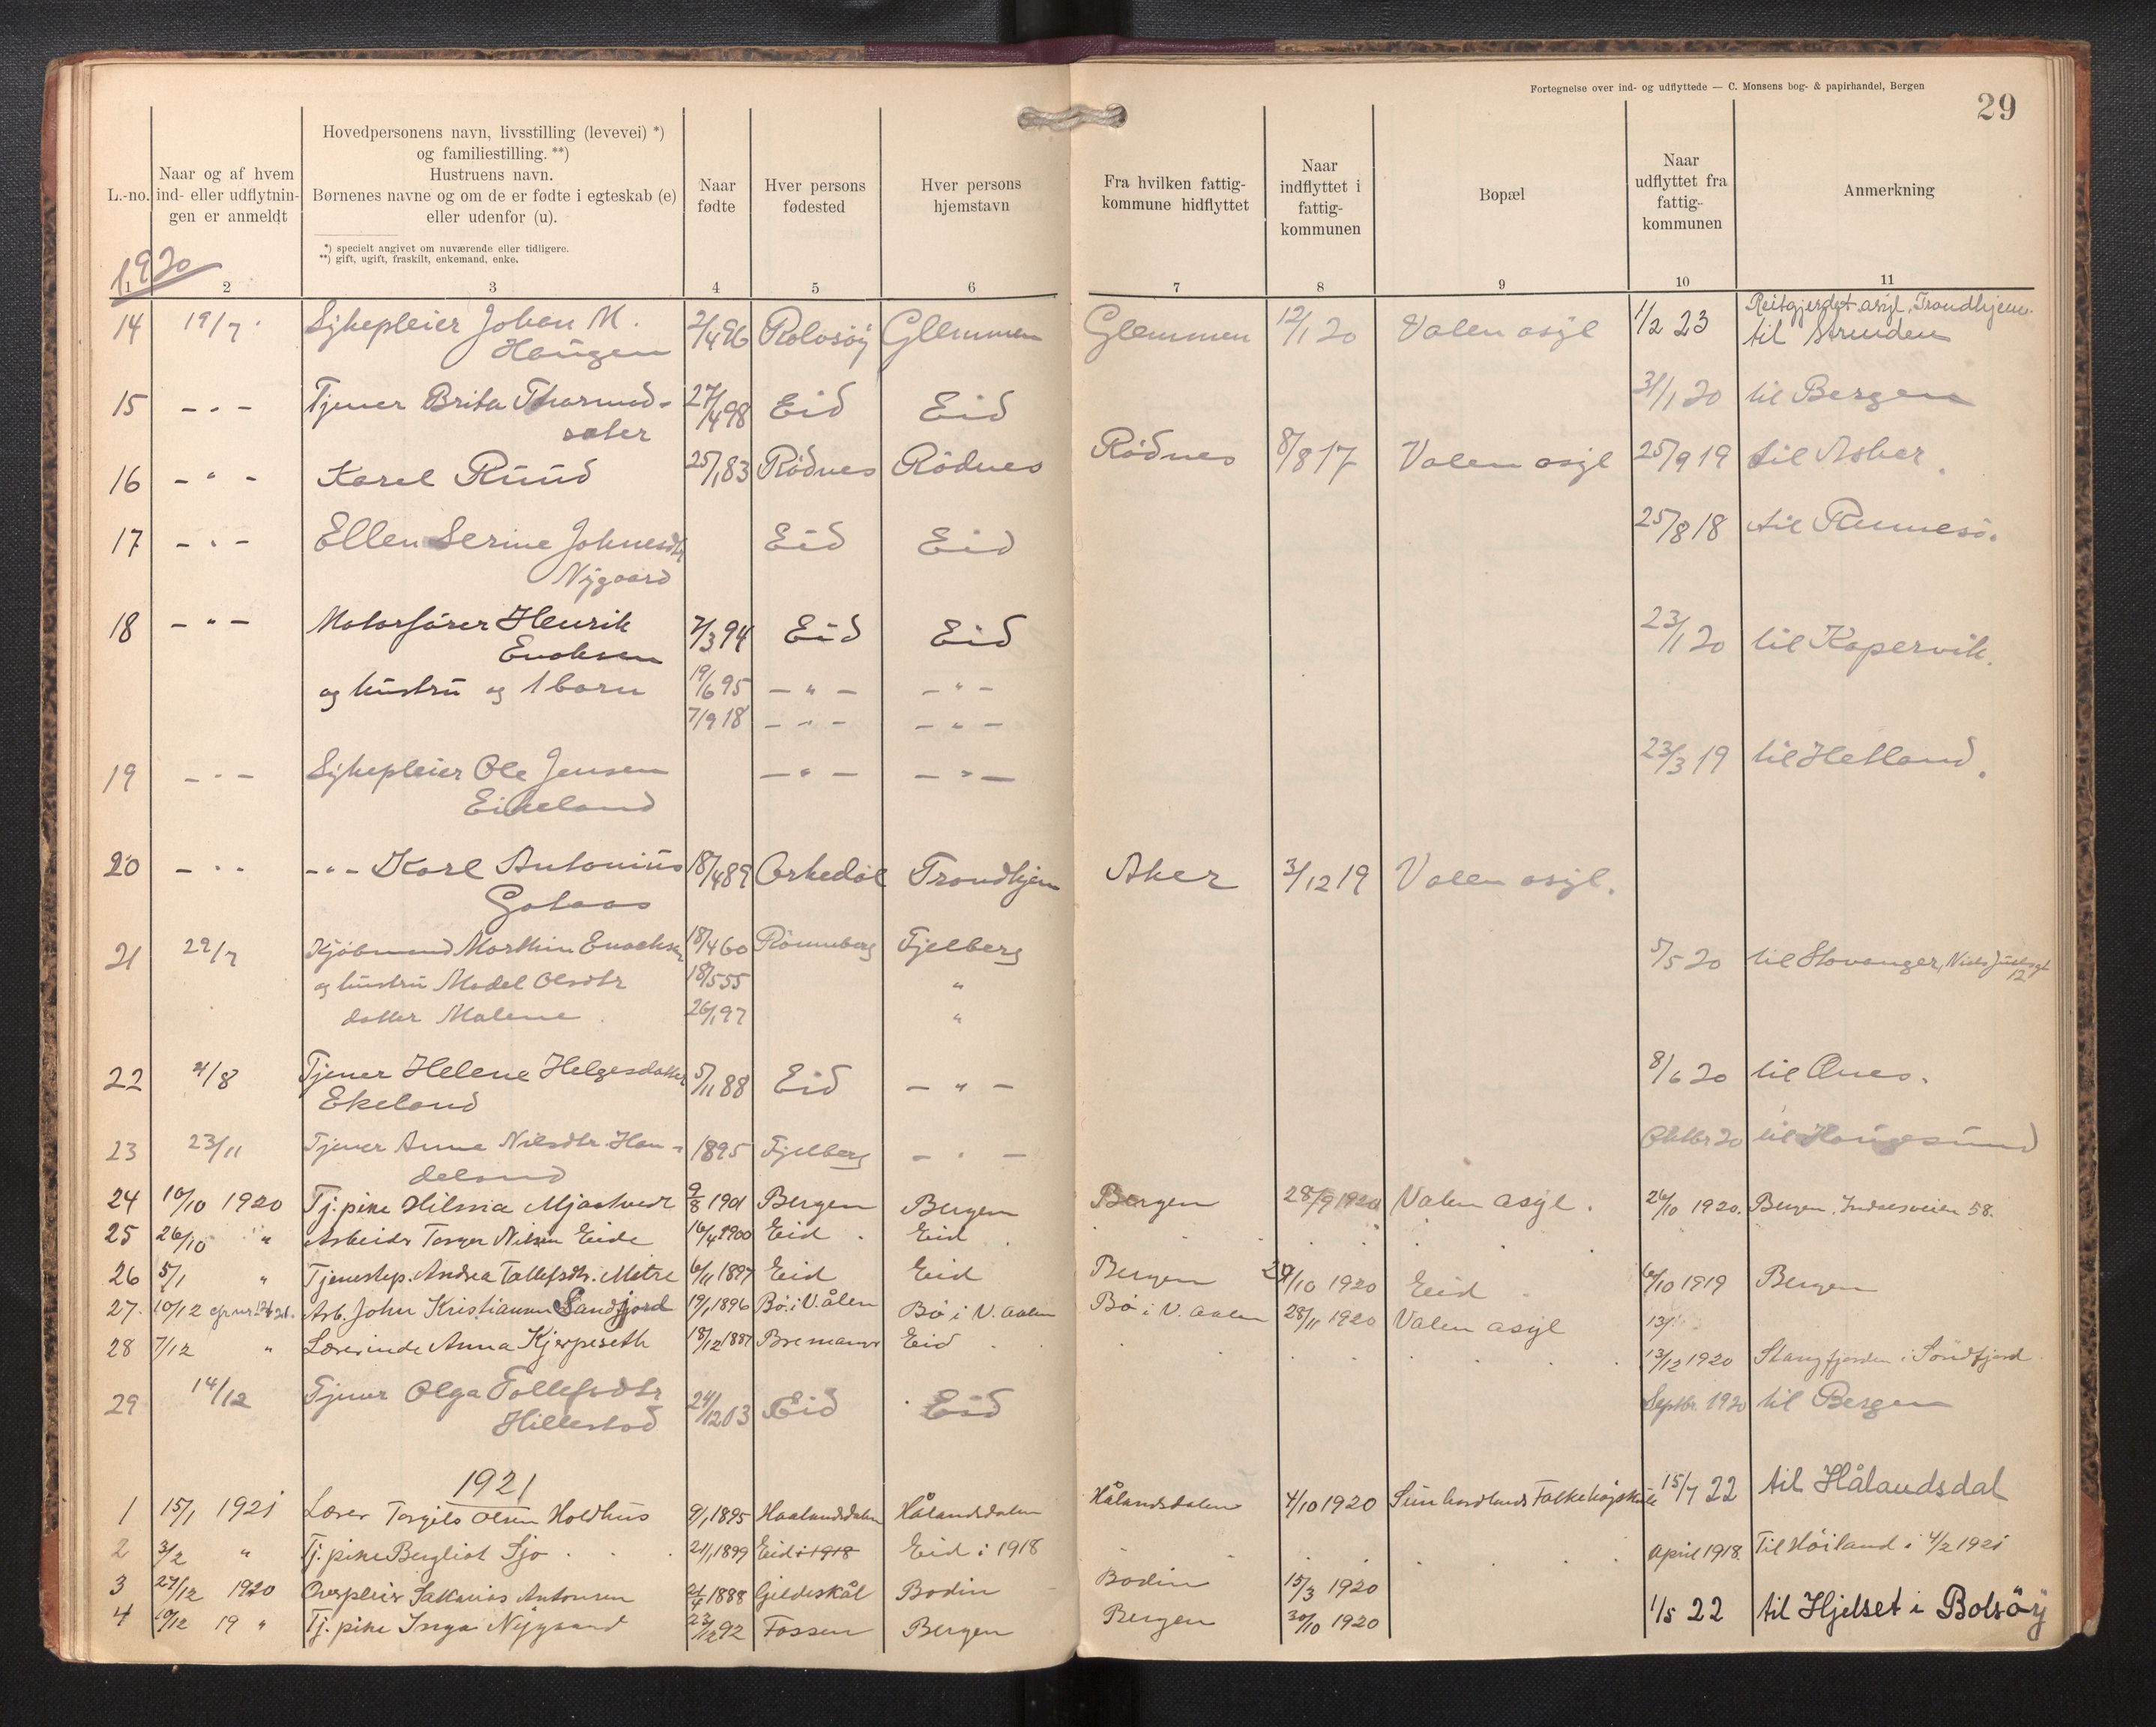 Fortegnelse over ind- og udflyttede — C. Monsens bog- & papirhandel, Bergen
29
L.-no.
Naar og af hvem
ind- eller udflytnin-
gen er anmeldt
Hovedpersonens navn, livsstilling (levevei) *)
og familiestilling. **)
Hustruens navn.
Børnenes navne og om de er fødte i egteskab (e)
eller udenfor (u).
*) specielt angivet om nuværende eller tidligere.
**) gift, ugift, fraskilt, enkemand, enke.
Naar
fødte
Hver persons
fødested
Hver persons
hjemstavn
Fra hvilken fattig-
kommune hidflyttet
Naar
indflyttet i
fattig-
kommunen
Bopæl
Naar
udflyttet fra
fattig-
kommunen
Anmerkning
1920
1 2 3 4 5 6 7 8 9 10 11
14 19/7 Sykepleier Johan M. 2/4 96 Rolvsöy Glemmen Glemmen 12/1 20 Valen asyl 1/2 23 Reitgjerdet asyl, Trondhjem.
Haugen til Strinden
15 - " - Tjener Brita Thormod- 27/4 98 Eid Eid 31/1 20 til Bergen
sæter
16 - " - Karel Ruud 25/1 83 Rödnes Rödnes Rödnes 8/8 17 Valen asyl 25/9 19 til Asker.
17 - " - Ellen Serine Johnesdtr Eid Eid 25/8 18 til Rennesö.
Nygaard
18 - " - Motorförer Henrik 7/3 94 Eid Eid 23/1 20 til Kopervik.
Enoksen
og hustru og 1 barn 19/6 95 - " - - " -
7/9 18 - " - - " -
19 - " - Sykepleier Ole Jensen - " - - " - 23/3 19 til Hetland.
Eikeland
20 - " - - " - Karl Antonius 18/4 89 Orkedal Trondhjem Aker 3/12 19 Valen asyl.
Gotaas
21 29/7 Kjöbmand Marthin Enochsen 18/4 60 Rönneberg Fjelberg 5/5 20 til Stavanger, Niels Juelsgt
12
og hustru Madel Olsdtr 18/5 55 "
datter Malene 26/1 97 "
22 21/8 Tjener Helene Helgesdatter 5/11 88 Eid - " - 8/6 20 til Ånes.
Ekeland
23 23/11 Tjener Anna Nilsdtr. Han- 1895 Fjelberg - " - Oktbr 20 til Haugesund
deland
24 10/10 1920 Tj. pike Hilma Mjaatvedt 9/8 1901 Bergen Bergen Bergen 28/9 1920 Valen asyl. 26/10 1920. Bergen, Indalsveien 58.
25 26/10 " Arbeider Torger Nilsen Eide 16/4 1900 Eid Eid
26 5/1 " Tjenestep. Andrea Tollefsdtr. Matre 6/11 1897 Eid Eid Bergen 29/10 1920 Eid 6/10 1919 Bergen
27. 10/12 Arb. John Kristiansen Sandfjord 19/1 1896 Bö. i V. ålen Bö i V. Aalen Bö i V. Aalen 28/11 1920 Valen asyl 13/
28 7/12 " Lærerinde Anna Kjerpeseth 18/12 1887 Bremanger Eid 13/12 1920 Stangfjorden i Söndfjord
29 14/12 Tjener Olga Tollefsdtr 24/12 03 Eid Eid Septbr. 1920 til Bergen
Hillestad
1921
1 15/1 1921 Lærer Torgils Olsen Holdhus 9/1 1895 Haalandsdalen Hålandsdalen Hålandsdalen 4/10 1920 Sunhordlands Folkehöjskule 15/7 22 til Hålandsdal
2 3/2 " Tj. pike Bergliot Sjo 21/1 1899 Eid i 1918 Eid i 1918 April 1918. Til Höiland i 4/2 1921
3 27/12 1920 Overpleier Sakarias Antonsen 21/4 1888 Gildeskål Bodin Bodin 15/3 1920
4 10/12 19 " Tj. pike Inga Nygaard 23/12 92 Fossen Bergen Bergen 30/10 1920 1/5 22 til Hjelset i Bolsöy